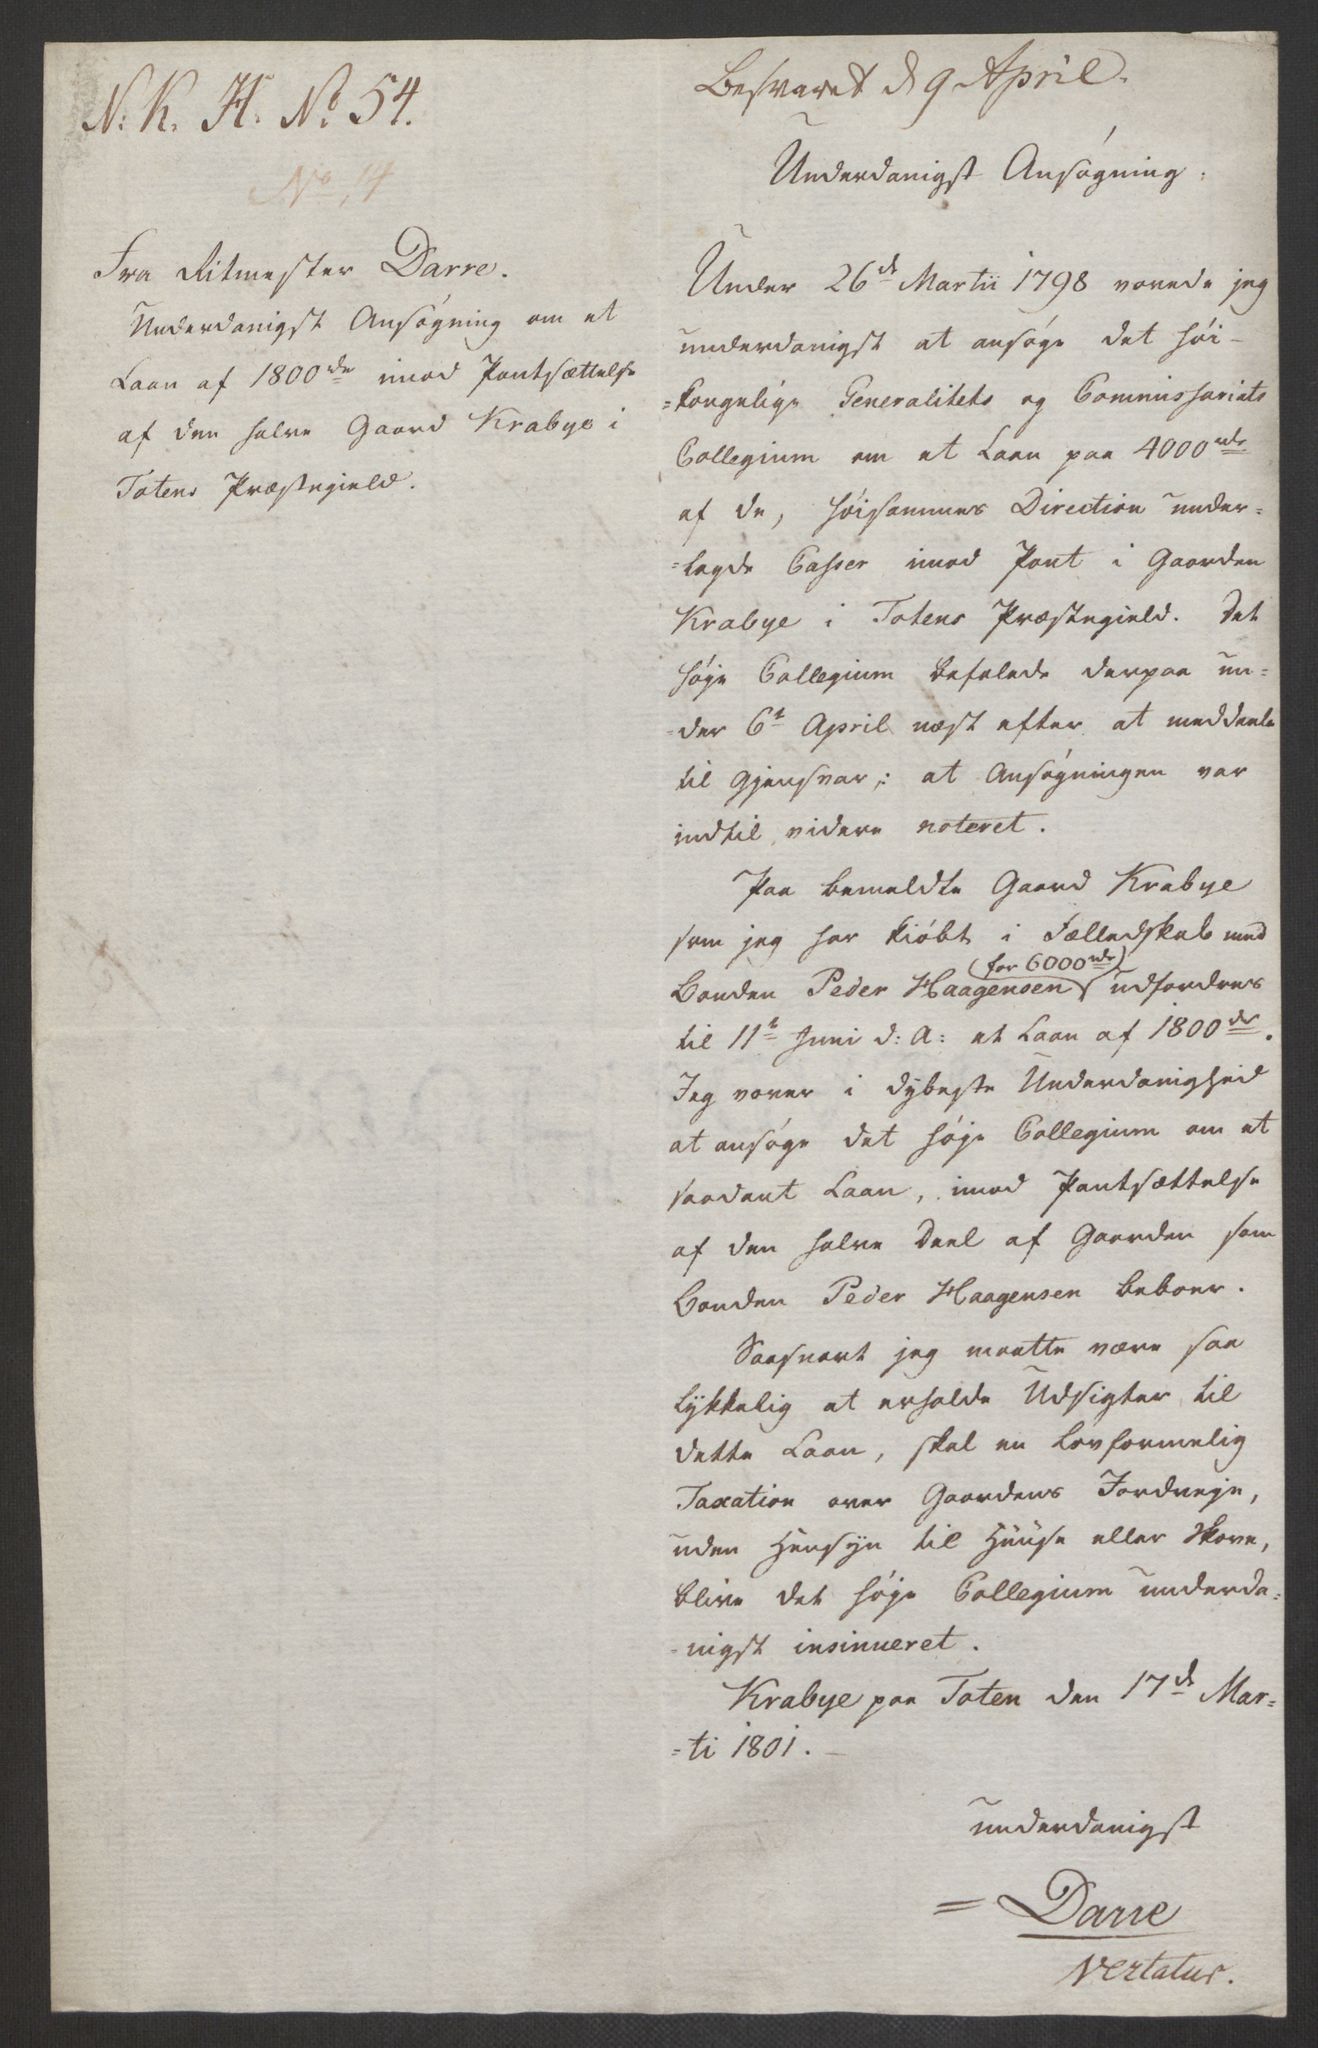 N. K. H. No 54.
No 14
Fra Ritmester Darre.
Underdanigst Ansøgning om et
Laan af 1800 rdr imod Pantsættelse
af den halve Gaard Krabye i
Totens Præstegield.
Besvaret d 9 April.
Underdanigst Ansøgning.
Under 26d Martii 1798 vovede jeg
underdanigst at ansøge det høi-
=kongelige Generalitets og Commissariats
Collegium om et Laan paa 4000 rdr
af de, høisammes Direction under=
=lagde Casser imod Pant i Gaarden
Krabye i Totens Præstegield. Det
høje Collegium befalede derpaa un=
=der 6t April næst efter at meddeele
til Gjensvar: at Ansøgningen var
indtil videre noteret.
Paa bemeldte Gaard Krabye
som jeg har kiøbt i Fælledskab med
(for 6000 rdr)
Bonden Peder Haagensen udfordres
til 11t Juni d: A: et Laan af 1800 dr.
Jeg vover i dybeste Underdanighed
at ansøge det høje Collegium om et
saadant Laan, imod Pantsættelse
af den halve Deel af Gaarden som
Bonden Peder Haagensen beboer.
Saasnart jeg maatte være saa
lykkelig at erholde Udsigter til
dette Laan, skal en lovformelig
Taxation over Gaardens Jordveje,
uden Hensyn til Huuse eller Skove,
blive det høje Collegium underda=
=nigst insinueret.
Krabye paa Toten den 17d Mar=
=ti 1801.
underdanigst
= Darre
vertatur.